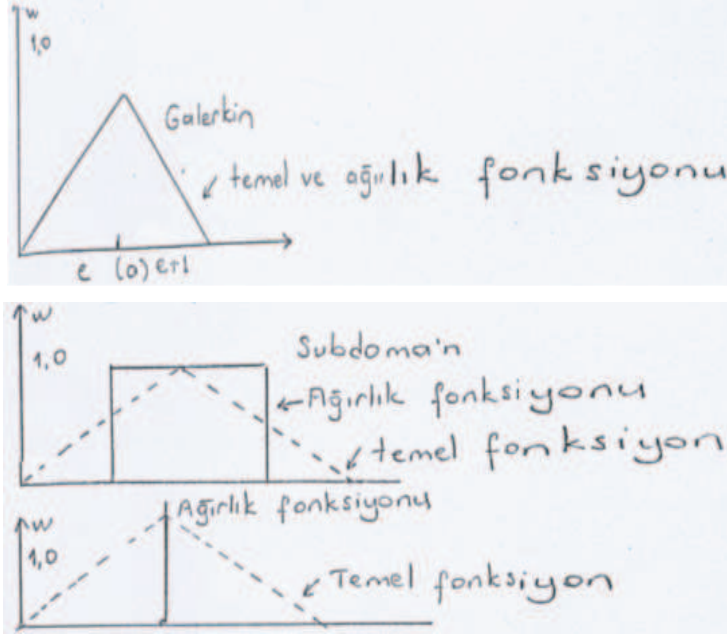 w
1,0
Galerkin
temel ve ağırlık fonksiyonu
e (a) e+1
w
1,0
Subdoma'n
Ağırlık fonksiyonu
temel fonksiyon
w
Ağırlık fonksiyonu
1,0
Temel fonksiyon